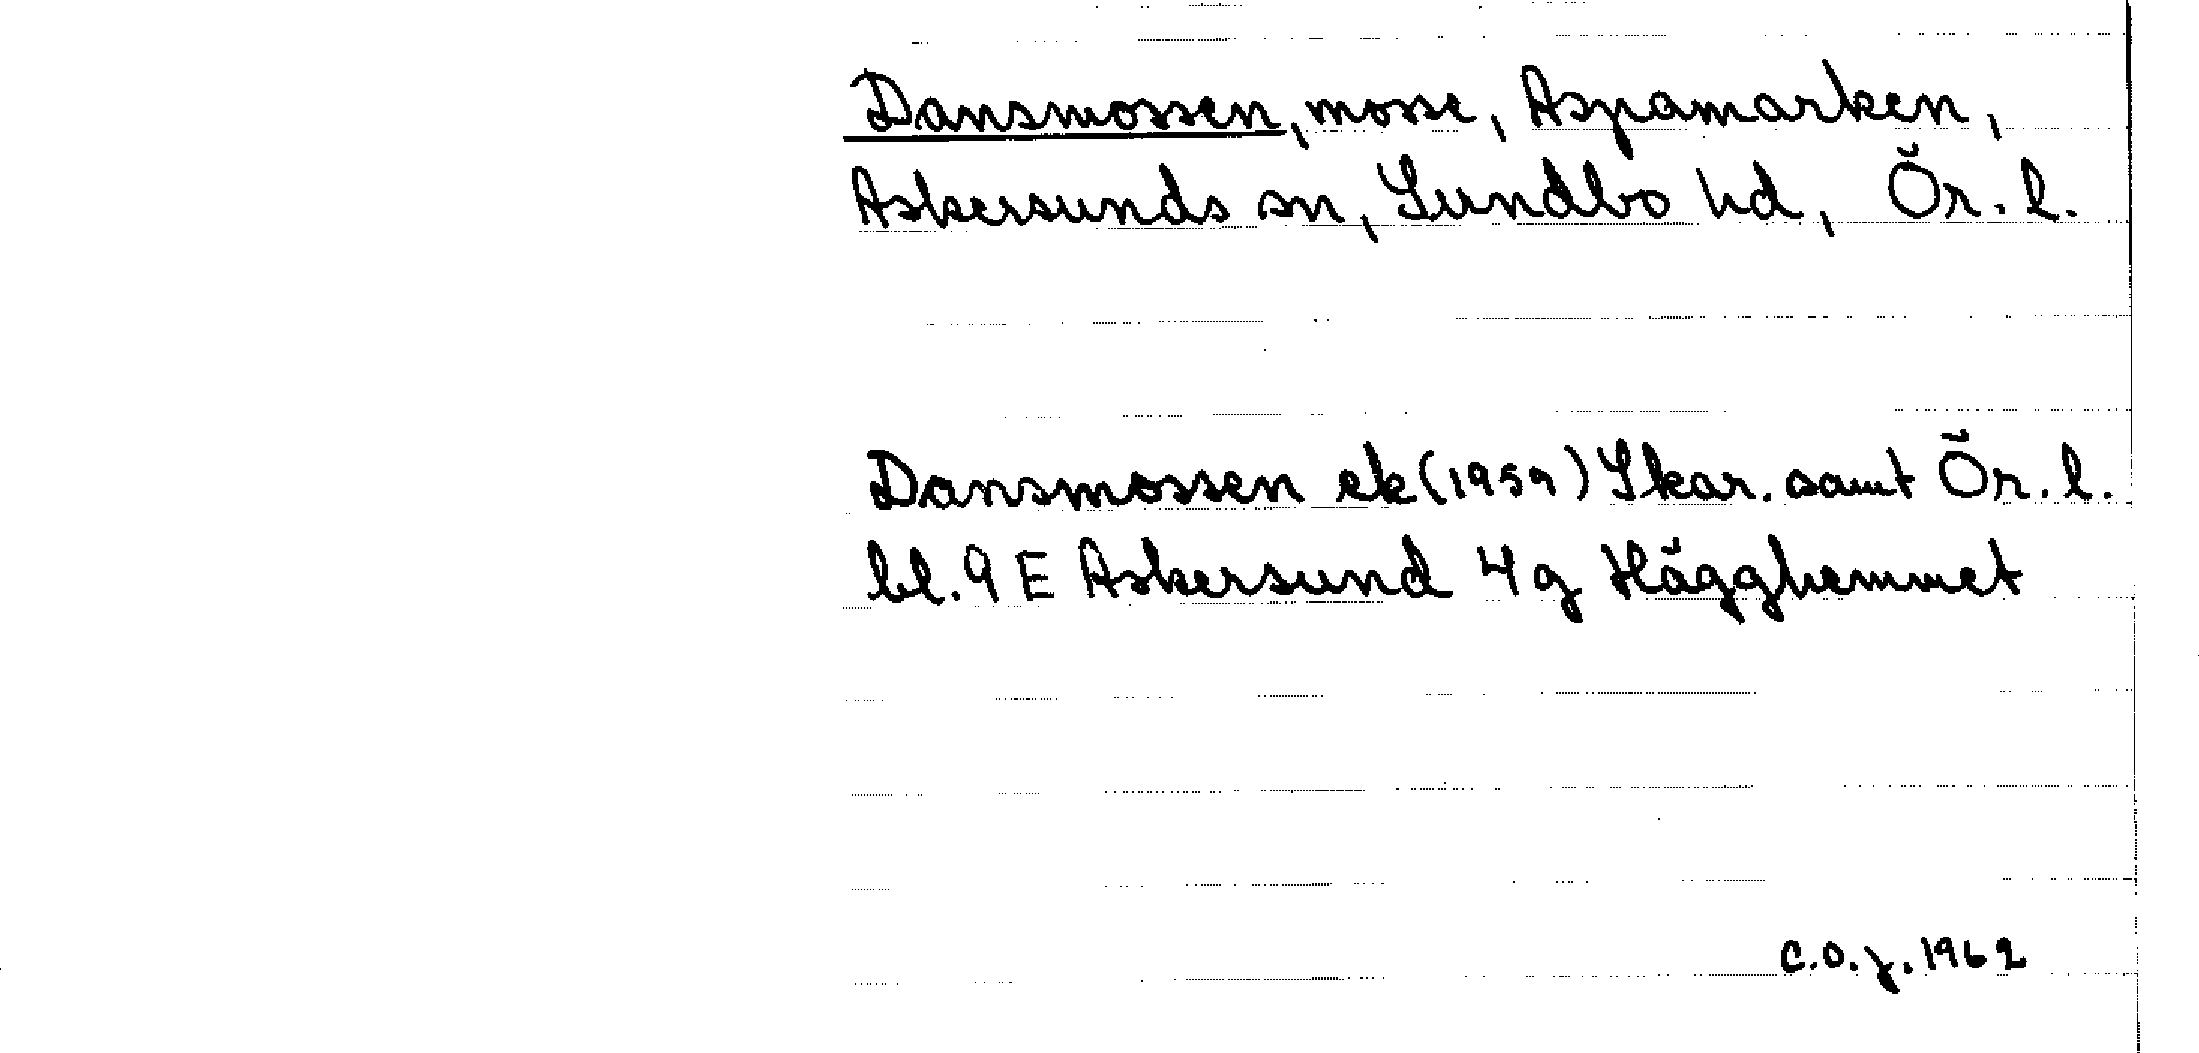 Dansmossen, mosse, Aspamarken,
Askersunds sn, Sundbo hd, Ör. l.
Dansmossen ek (1959) Skar. samt Ör. l.
bl. 9 E Askersund 4 g Hägghemmet
C.O.J. 1962